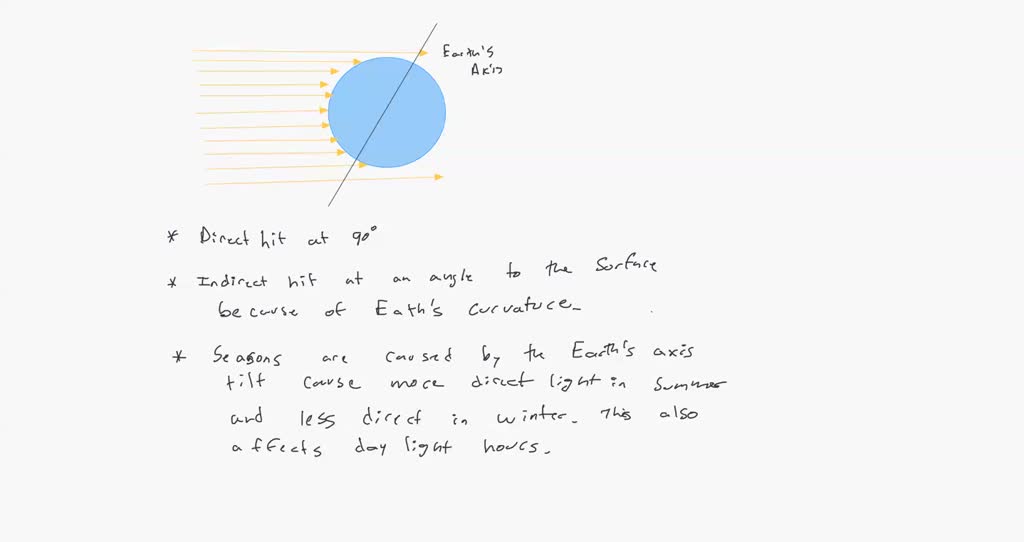 Earth's
Axis
* Direct hit at 90°
* Indirect hit at an angle to the surface
because of Eath's curvature.
* Seasons are caused by the Earth's axis
tilt cause more direct light in summer
and less direct in winter. This also
affects day light hours.